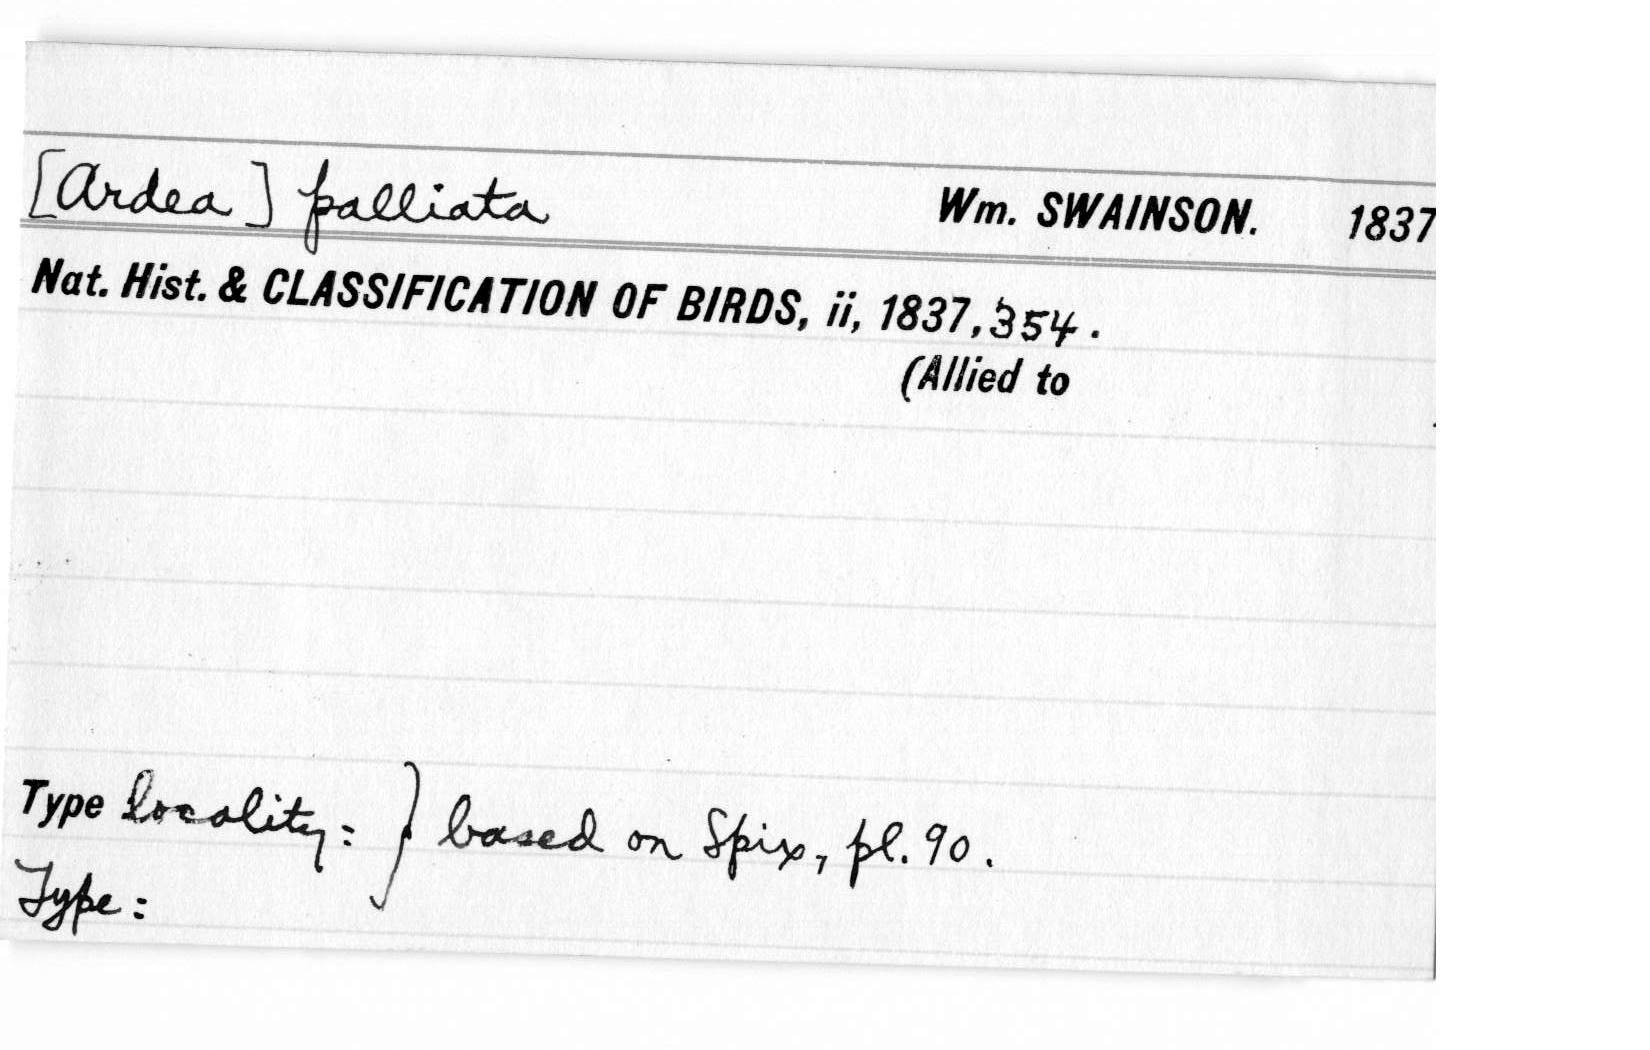 [Ardea] palliata Wm. SWAINSON. 1837
Nat. Hist. & CLASSIFICATION OF BIRDS, ii, 1837, 354.
(Allied to
Type locality: } based on Spix, pl. 90.
Type: